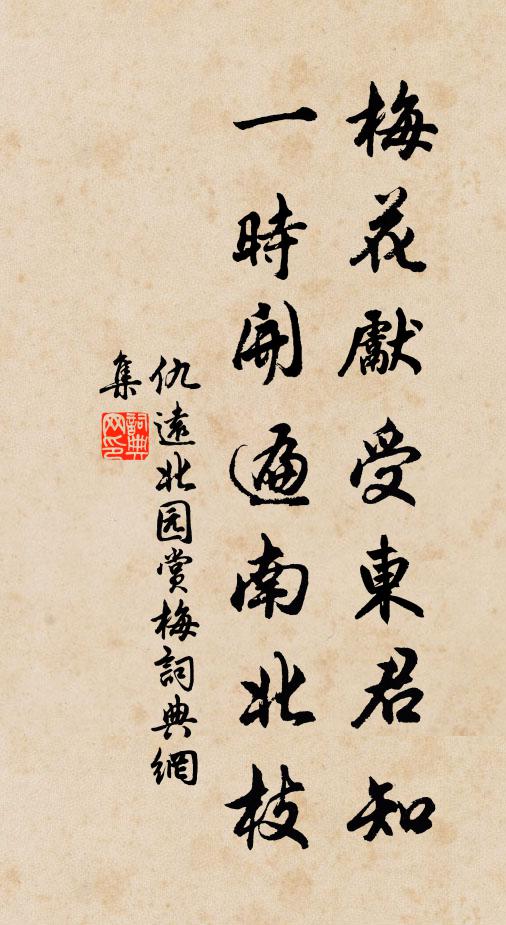 梅花獻受東君知
一時開遍南北枝
仇遠北园賞梅詞典網
集
詞典网印